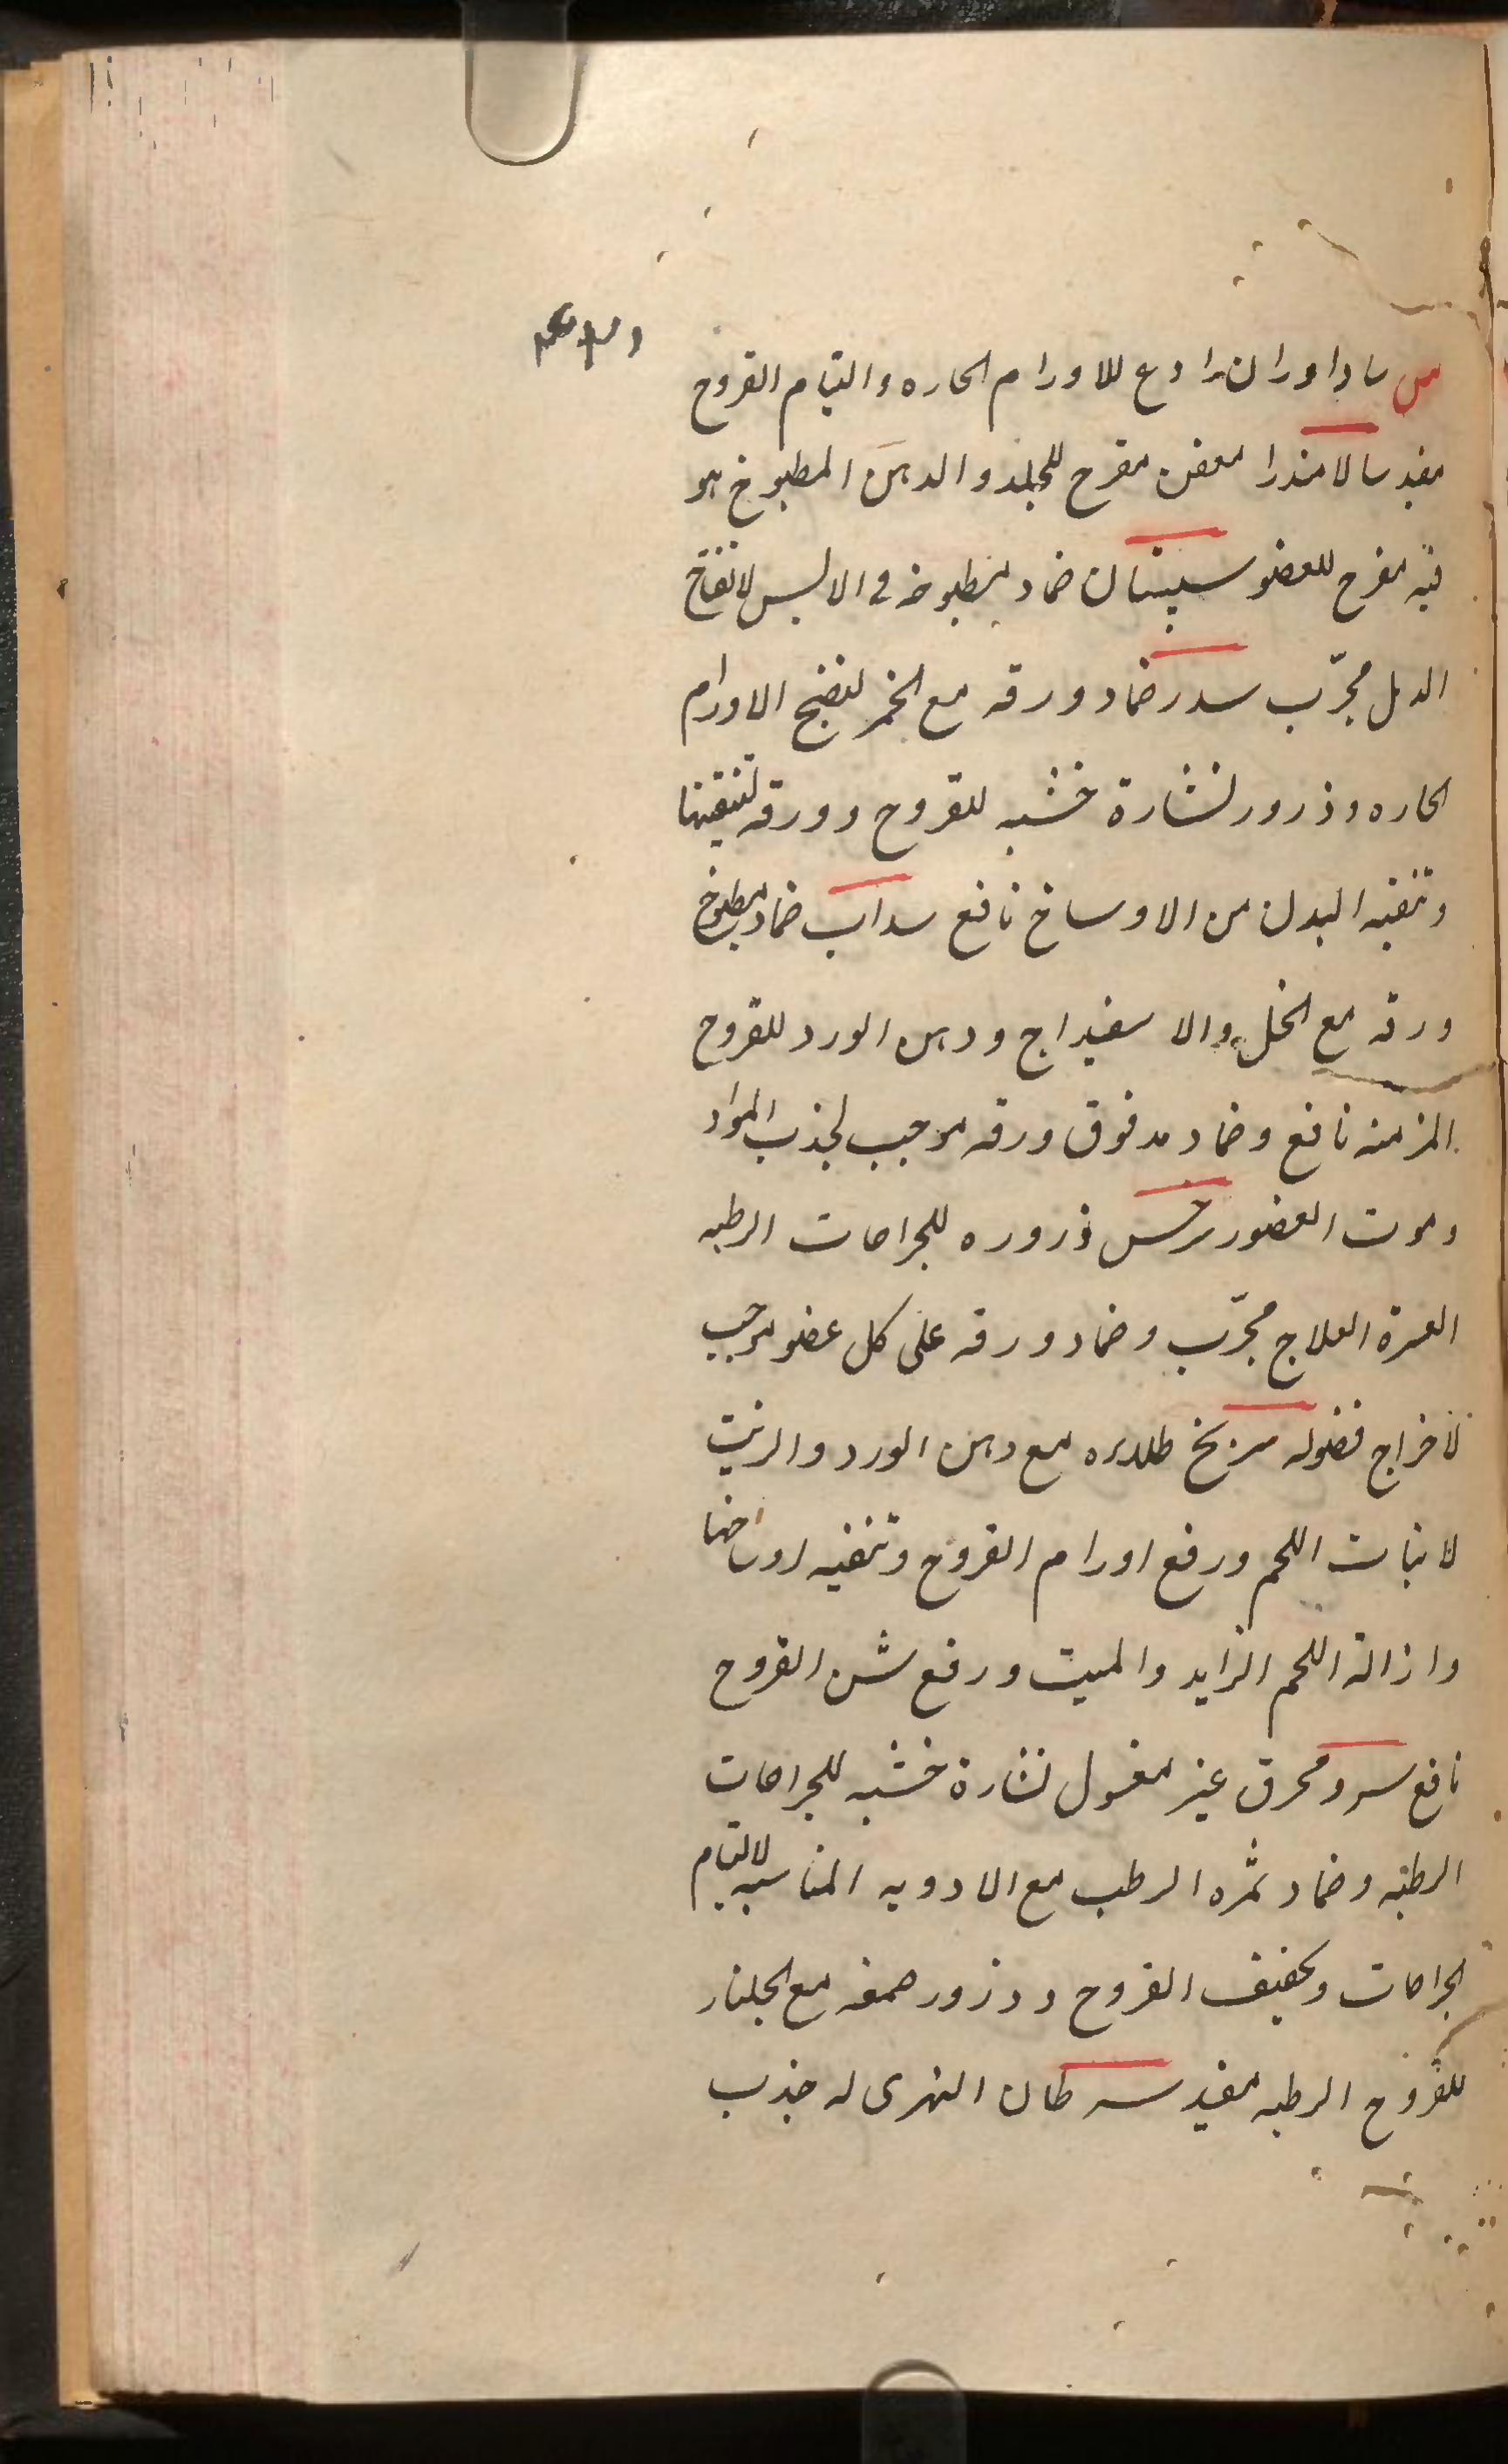 س ساداوران رادع للاورام الحاره والتیام القروح
مفید سالامندرا معفن مقرح للجلد والدهن المطبوخ هو
فیه مقرح للعضو سپستان ضماد مطبوخه فی الالبس لانفتاح
الدمل مجرّب سدر ضماد ورقه مع الخمر لنضج الاورام
الحاره وذرور نشارة خشبه للقروح وورقه لتنقیتها
وتنقیه البدن من الاوساخ نافع سداب ضماد مطبوخ
ورقه مع الخل والاسفیداج ودهن الورد للقروح
المزمنه نافع وضماد مدقوق ورقه موجب لجذب المواد
وموت العضو سرخس ذروره للجراحات الرطبه
العسرة العلاج مجرّب وضماد ورقه علی کل عضو موجب
لاخراج فضوله سرنج طلاءه مع دهن الورد والزیت
لانبات اللحم ورفع اورام القروح وتنقیه اوساخها
وازالة اللحم الزاید والمیت ورفع نتن القروح
نافع سرو محرق غیر مغسول نشارة خشبه للجراحات
الرطبه وضماد ثمره الرطب مع الادویه المناسبه لالتیام
الجراحات وتخفیف القروح وذرور صمغه مع الجلنار
للقروح الرطبه مفید سرطان النهری له جذب